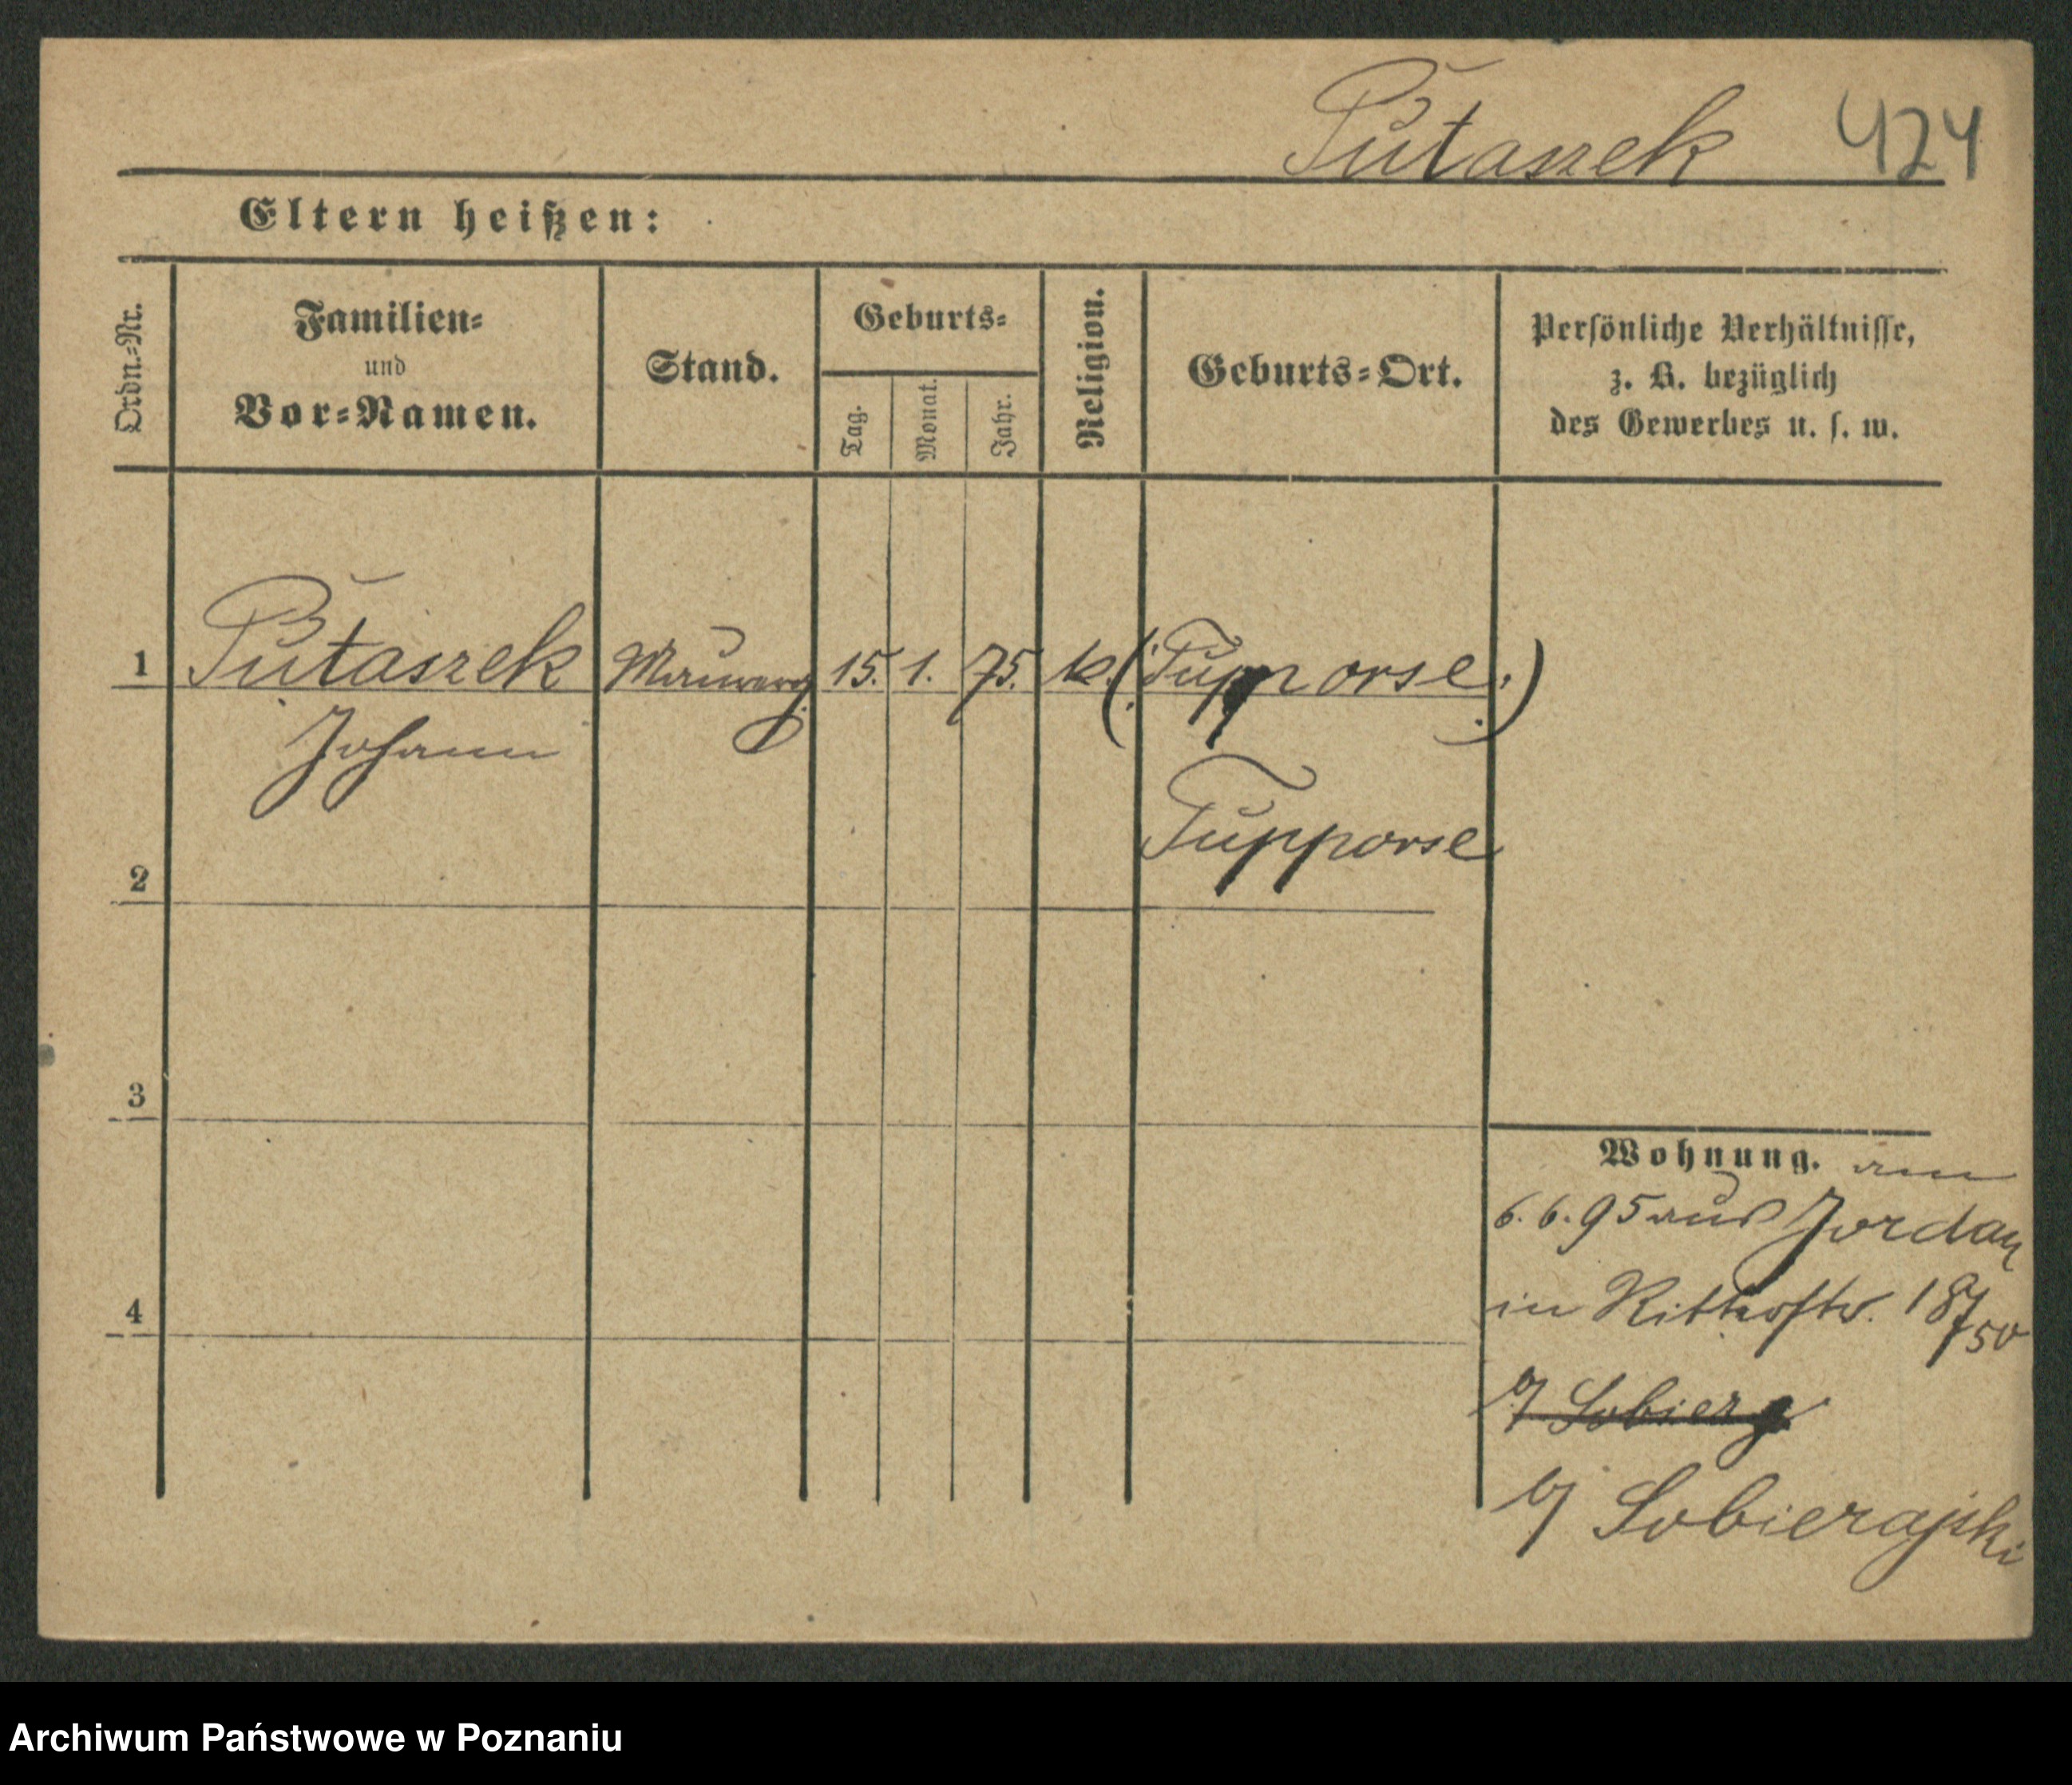 Putaszek 424
Eltern heißen:
Ordn.-Nr.
Familien-
und
Vor-Namen.
Stand.
Geburts-
Tag.
Monat.
Jahr.
Religion.
Geburts-Ort.
Persönliche Verhältnisse,
z. B. bezüglich
des Gewerbes u. s. w.
1 Putaszek 15. 1. 75. k. (Tupporse)
Johann
Tupporse
2
3
4
Wohnung. am
6.6.95 aus Jordan
in
Sobier
b/ Sobierajski
Archiwum Państwowe w Poznaniu